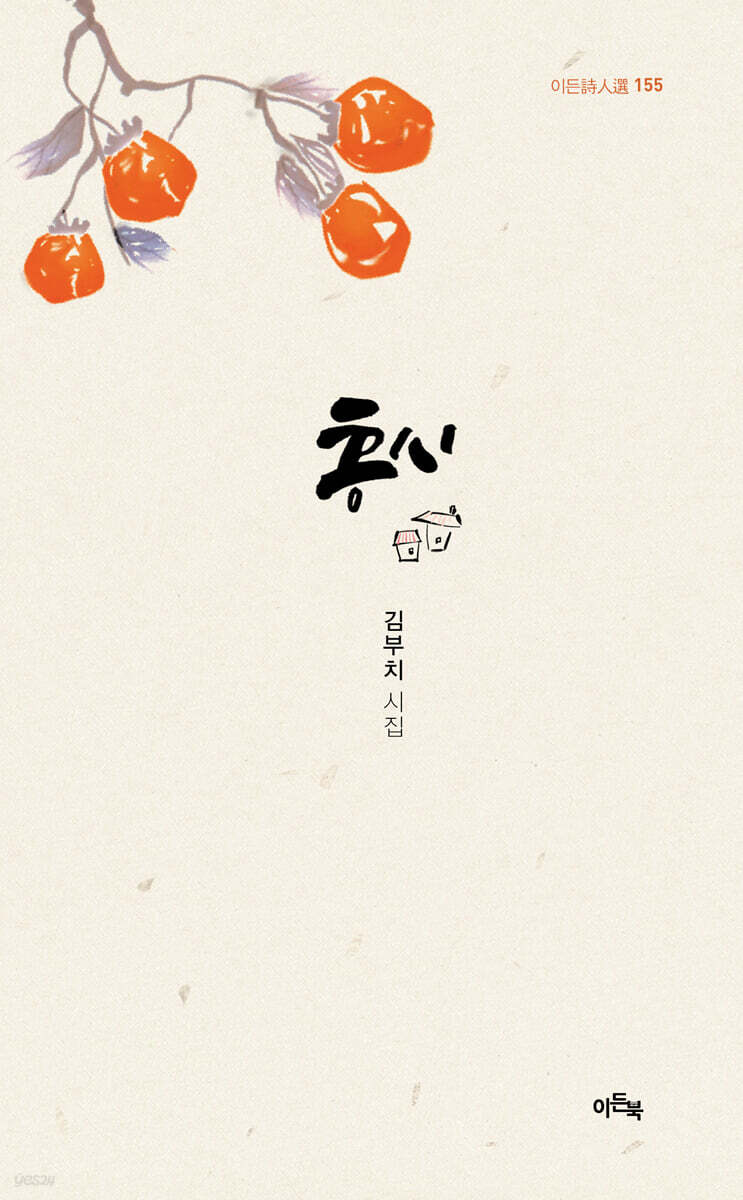 이든詩人選 155
홍시
김부치 시집
이든북
yes24